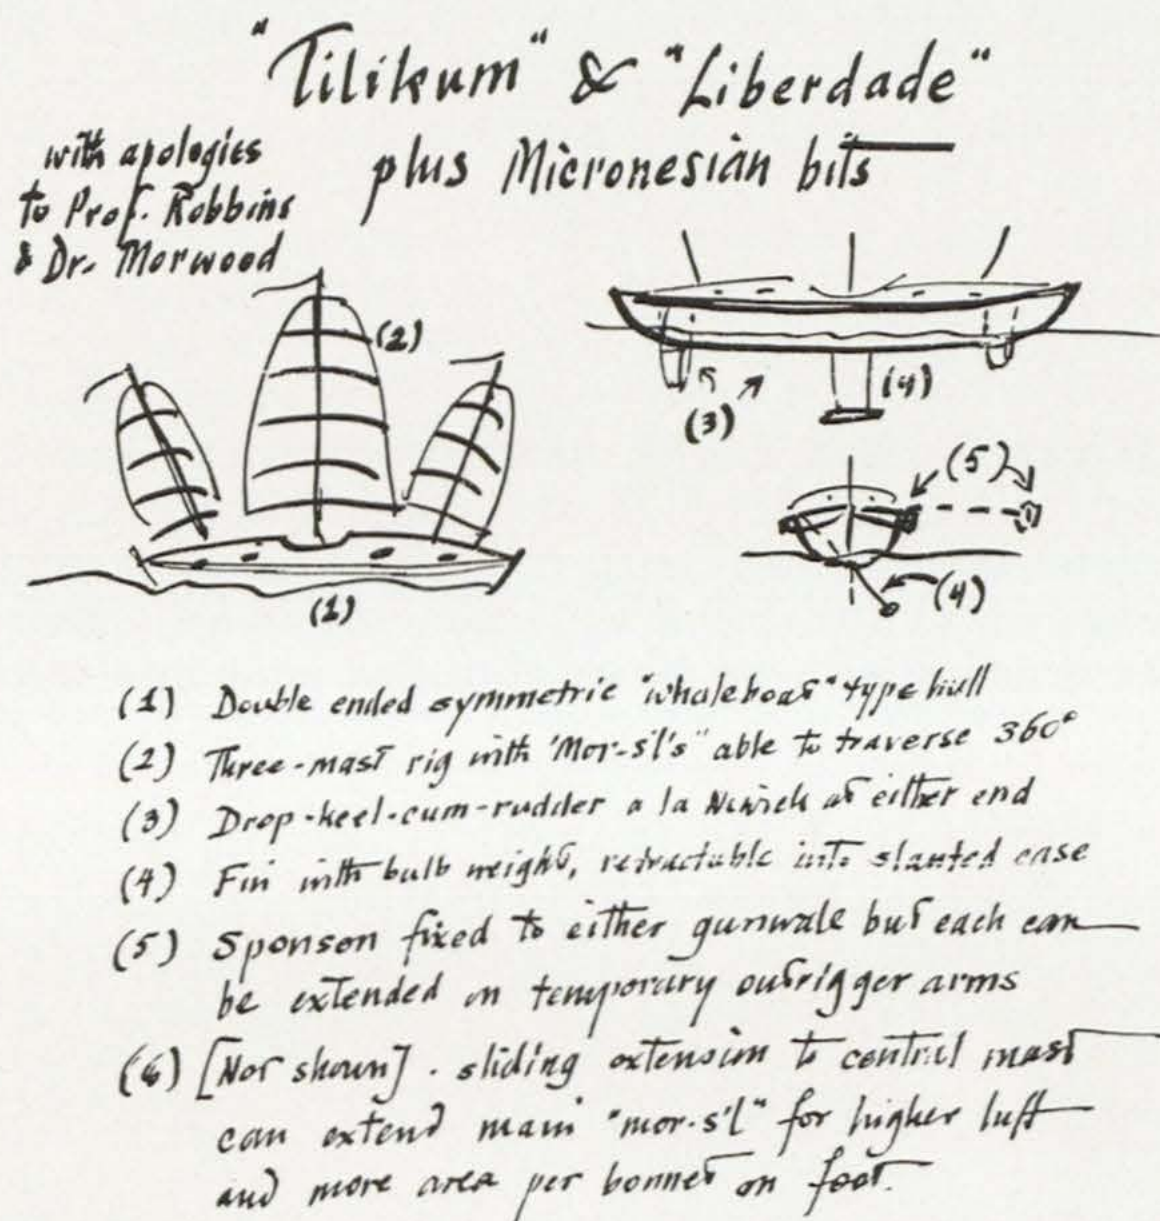 "Tilikum" & "Liberdade"
plus Micronesian bits
with apologies
to Prof. Robbins
& Dr. Morwood
(2)
(1)
(3)
(4)
(5)
(4)
(1) Double ended symmetric "whaleboat" type hull
(2) Three-mast rig with 'Mor-s'l's" able to traverse 360°
(3) Drop-keel-cum-rudder a la Newick at either end
(4) Fin with bulb weight, retractable into slanted case
(5) Sponson fixed to either gunwale but each can
be extended on temporary outrigger arms
(6) [Not shown] . sliding extension to central mast
can extend main "mor-s'l" for higher luff
and more area per bonnet on foot.